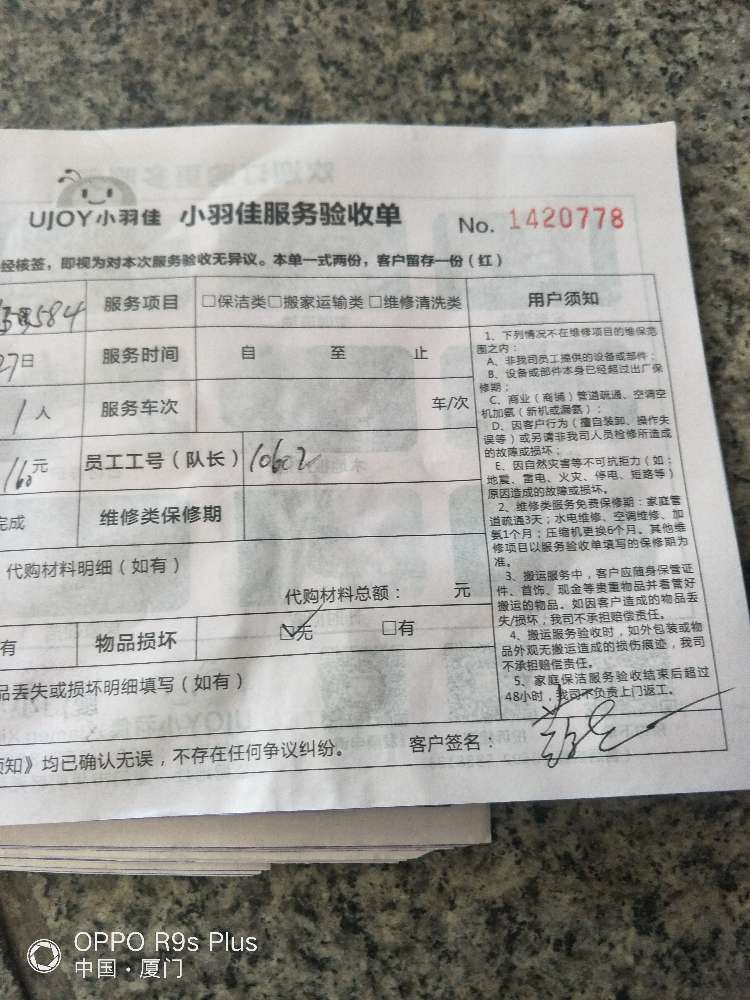 UJOY小羽佳 小羽佳服务验收单 No. 1420778
经核签，即视为对本次服务验收无异议。本单一式两份，客户留存一份（红）
584 服务项目 □保洁类□搬家运输类□维修清洗类 用户须知
27日 服务时间 自 至 止
1人 服务车次 车/次
160元 员工工号（队长） 10602
完成 维修类保修期
代购材料明细（如有）
代购材料总额： 元
有 物品损坏 ☑无 □有
品丢失或损坏明细填写（如有）
1、下列情况不在维修项目的维保范
围之内：
A、非我司员工提供的设备或部件；
B、设备或部件本身已经超过出厂保
修期；
C、商业（商铺）管道疏通、空调空
机加氨（新机或漏氨）；
D、因客户行为（擅自装卸、操作失
误等）或另请非我司人员检修所造成
的故障或损坏；
E、因自然灾害等不可抗拒力（如：
地震、雷电、火灾、停电、短路等）
原因造成的故障或损坏。
2、维修类服务免费保修期：家庭管
道疏通3天；水电维修、空调维修、加
氨1个月；压缩机更换6个月。其他维
修项目以服务验收单填写的保修期为
准。
3、搬运服务中，客户应随身保管证
件、首饰、现金等贵重物品并看管好
搬运的物品。如因客户造成的物品丢
失/损坏，我司不承担赔偿责任。
4、搬运服务验收时，如外包装或物
品外观无搬运造成的损伤痕迹，我司
不承担赔偿责任。
5、家庭保洁服务验收结束后超过
48小时，我司不负责上门返工。
知》均已确认无误，不存在任何争议纠纷。 客户签名：
OPPO R9s Plus
中国·厦门